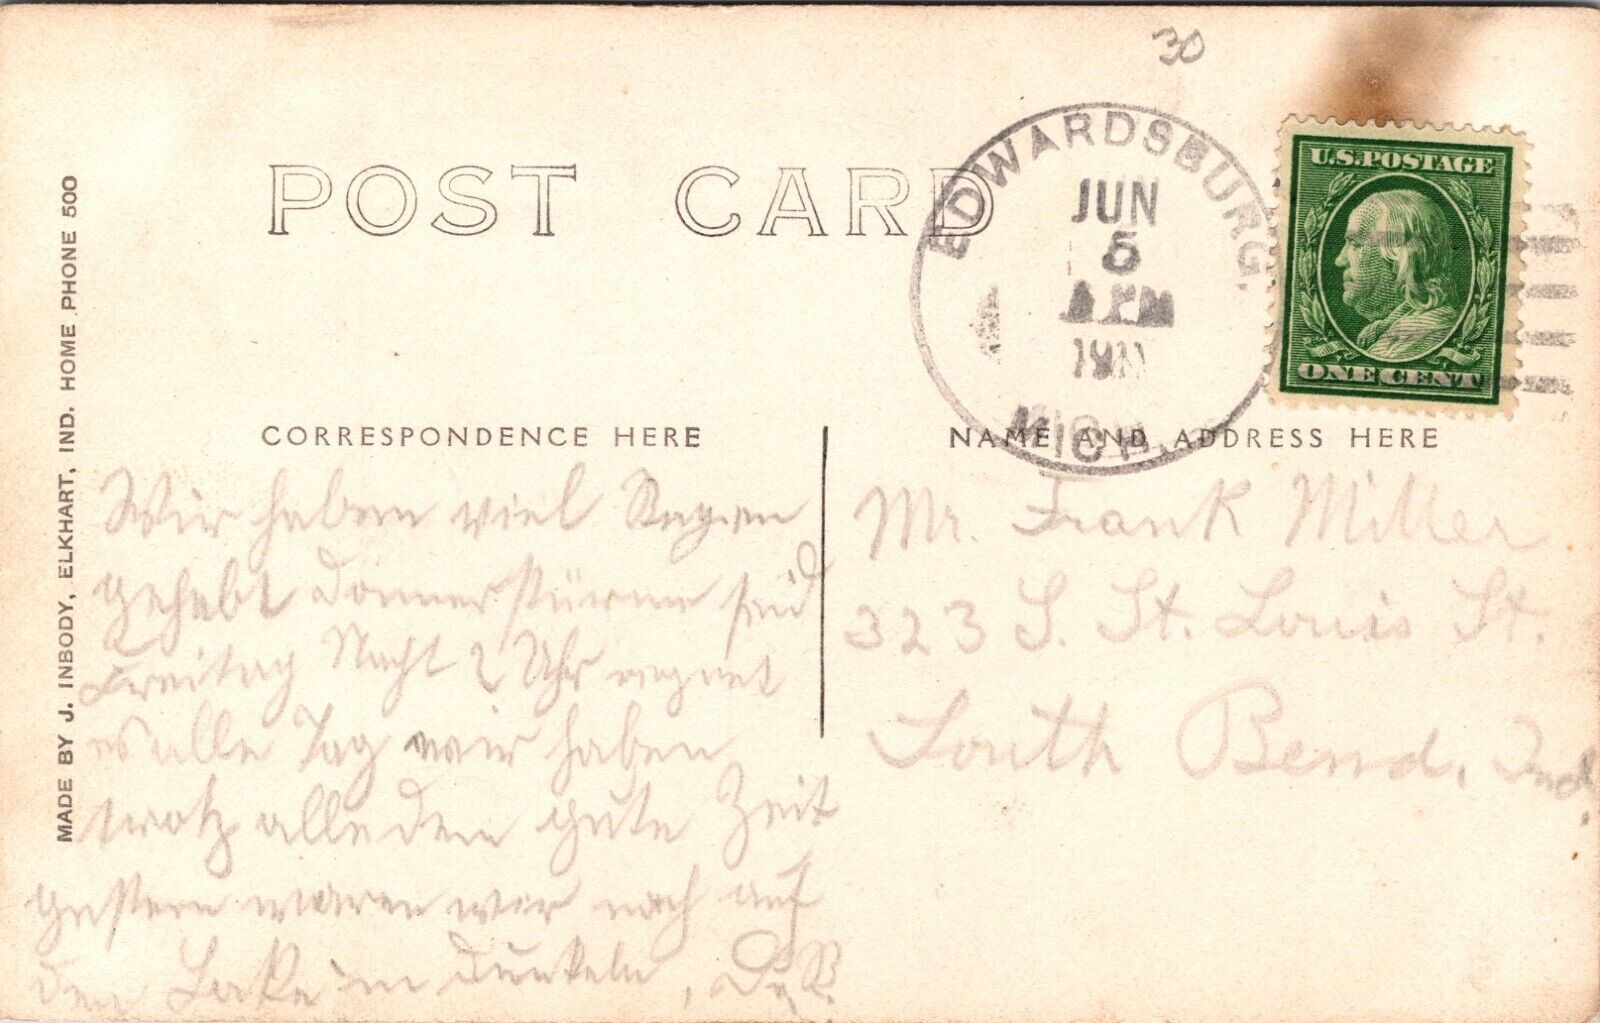 30
POST CARD
EDWARDSBURG,
JUN
5
1911
MICH.
U.S.POSTAGE
ONE CENT
MADE BY J. INBODY, ELKHART, IND. HOME PHONE 500
CORRESPONDENCE HERE
Wir haben viel Regen
gehabt Donnerstürme seid
Freitag Nacht 2 Uhr regnet
es alle Tag wir haben
trotz alledem gute Zeit
gestern waren wir noch auf
den Lake im dunkeln,
NAME AND ADDRESS HERE
Mr. Frank Miller
323 S. St. Louis St.
South Bend, Ind.